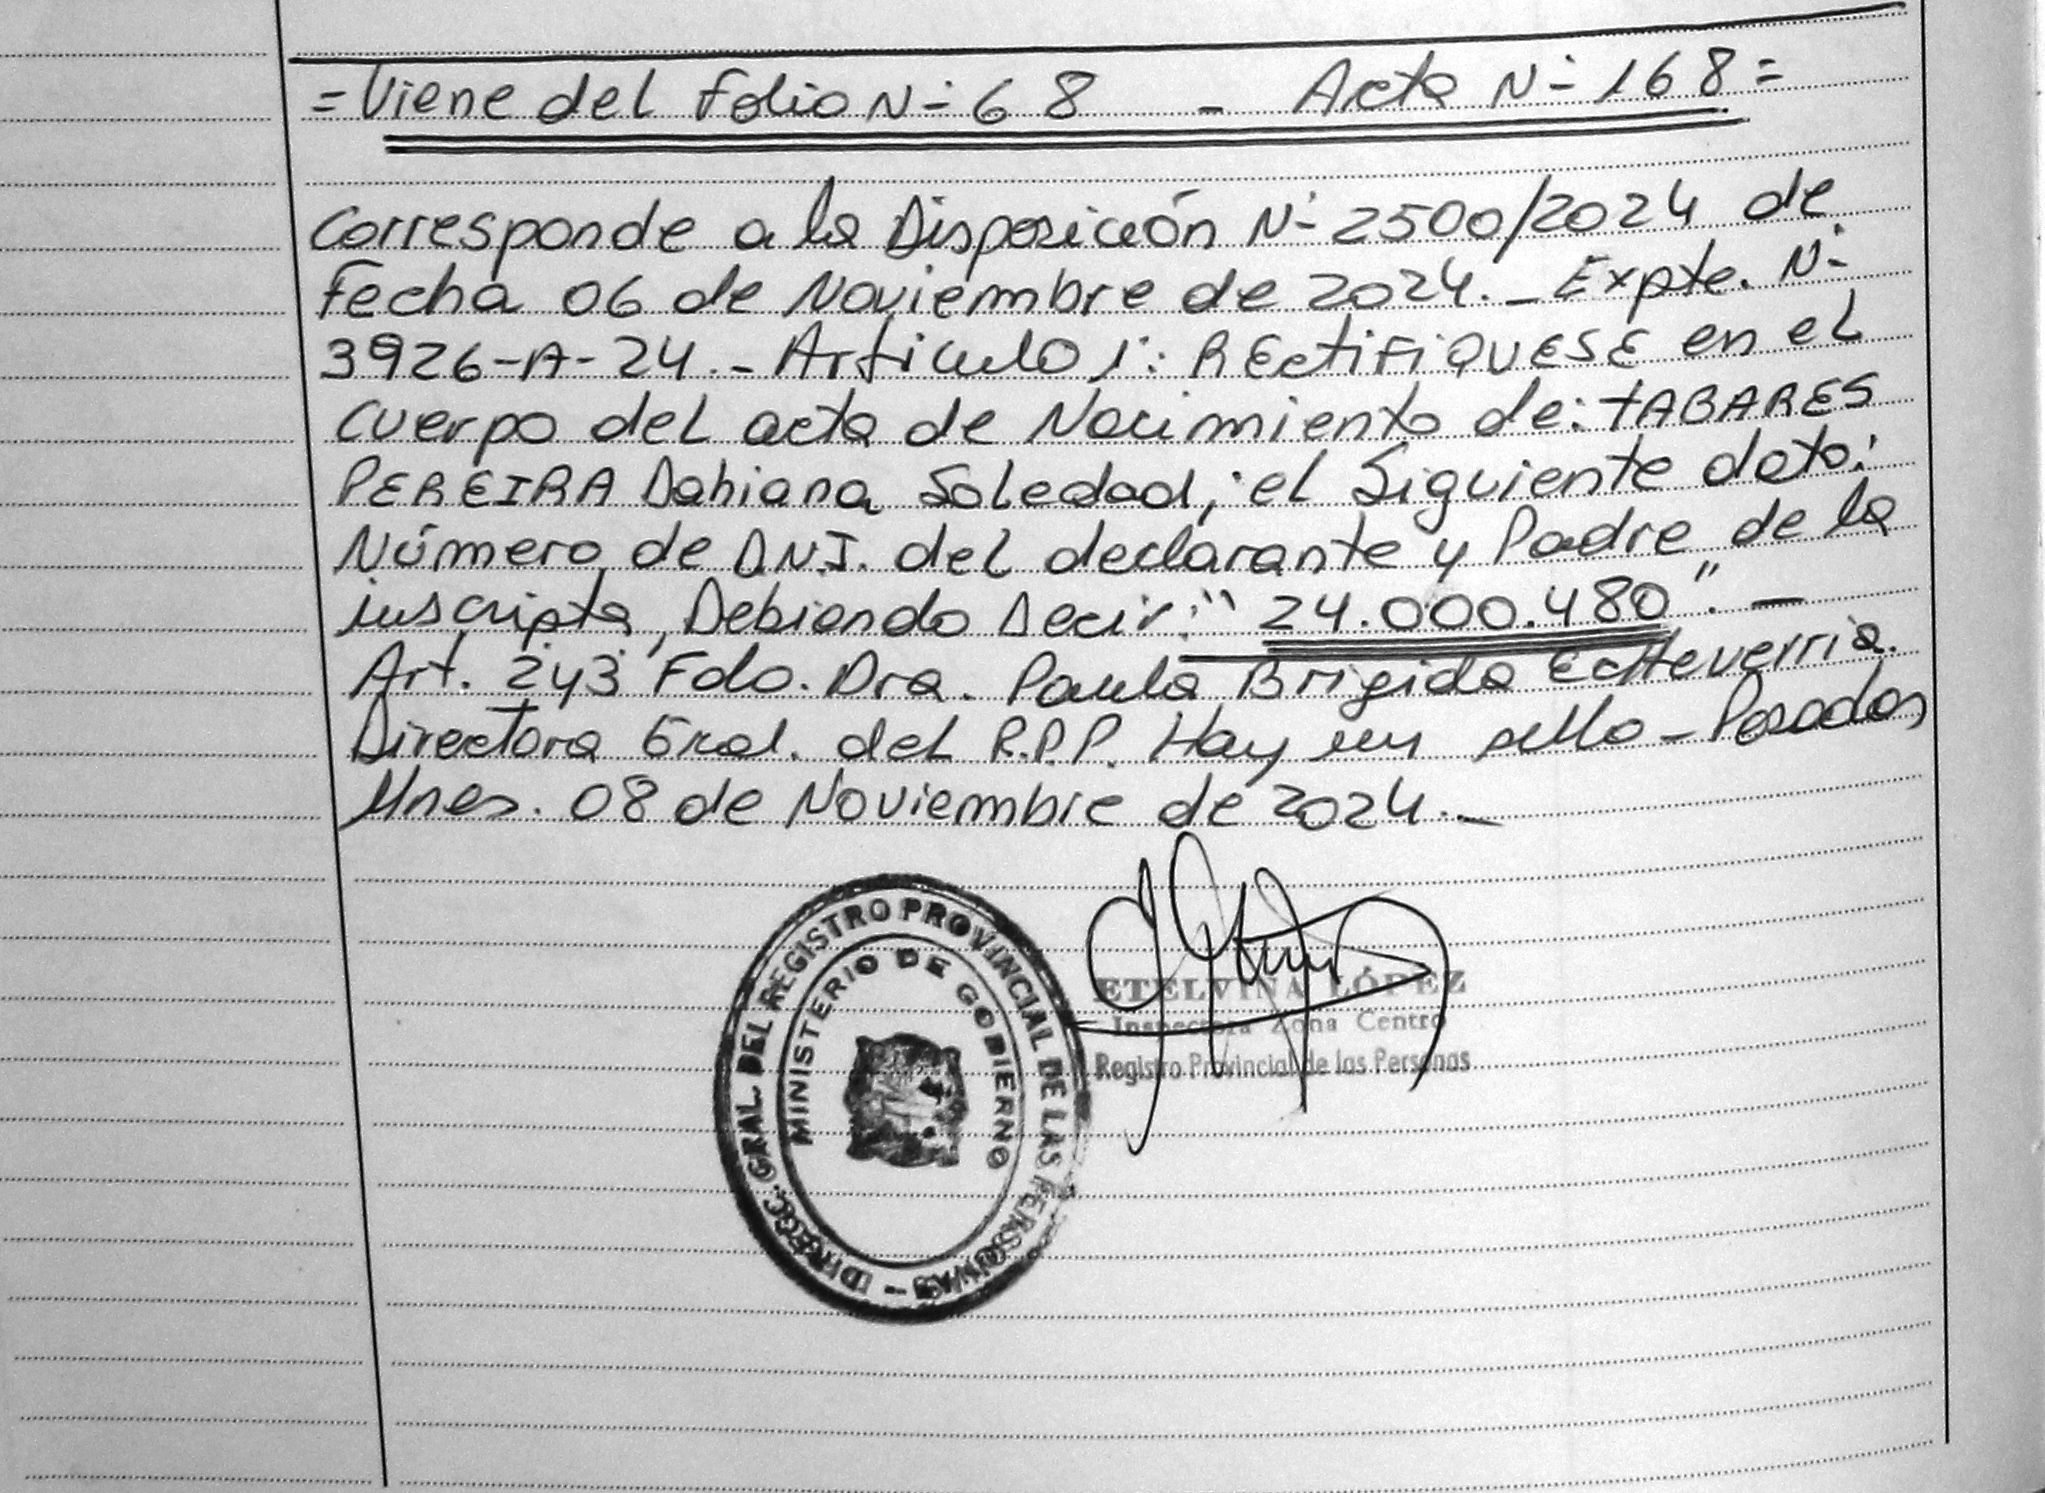 = Viene del Folio N- 68 - Acta N- 168 =
Corresponde a la Disposición N- 2500/2024 de
Fecha 06 de Noviembre de 2024._ Expte. N-
3926-A-24._ Artículo 1°: RECTIFIQUESE en el
Cuerpo del acta de Nacimiento de: TABARES
PEREIRA Dahiana Soledad, el Siguiente dato:
Número de D.N.I. del declarante y Padre de la
inscripta, Debiendo Decir: " 24.000.480 ". _
Art. 2 y 3 Fdo. Dra. Paula Brigida Echeverria.
Directora Gral. del R.P.P. Hay un sello - Posadas
Mnes. 08 de Noviembre de 2024._
DIRECC. GRAL. DEL REGISTRO PROVINCIAL DE LAS PERSONAS -
MINISTERIO DE GOBIERNO
ETELVINA LÓPEZ
Inspectora Zona Centro
Registro Provincial de las Personas